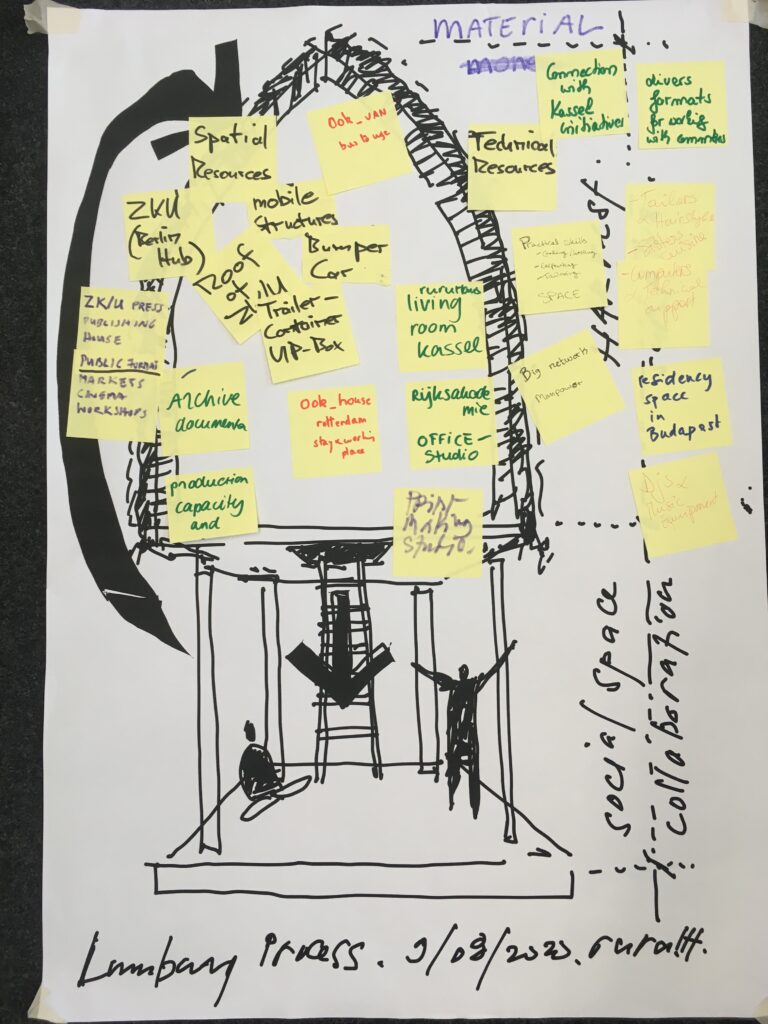 MATERIAL
Connection
with
Kassel
initiatives
divers
formats
for working
with communities
Spatial
Resources
Ook_VAN
bus to use
Technical
Resources
ZKU
(Berlin
Hub)
mobile
structures
Bumper
Car
Roof
of
Trailer-
Container
UP-Box
Practical skills
SPACE
+ Tailors
Hairstyle
- Computers
Technical
support
ZK/U PRESS
PUBLISHING
HOUSE
PUBLIC FORMAT
MARKETS
CINEMA
WORKSHOPS
Archive
documenta
Ook_house
rotterdam
stay & working
place
ruruhaus
living
room
kassel
Rijksakade
mie
OFFICE-
Studio
Big network
Manpower
residency
space
in
Budapast
production
capacity
and
Print-
Making
Studio.
Music
Equipment
HARVEST
social space
collaboration
Lumbung Process. 9/08/2020.